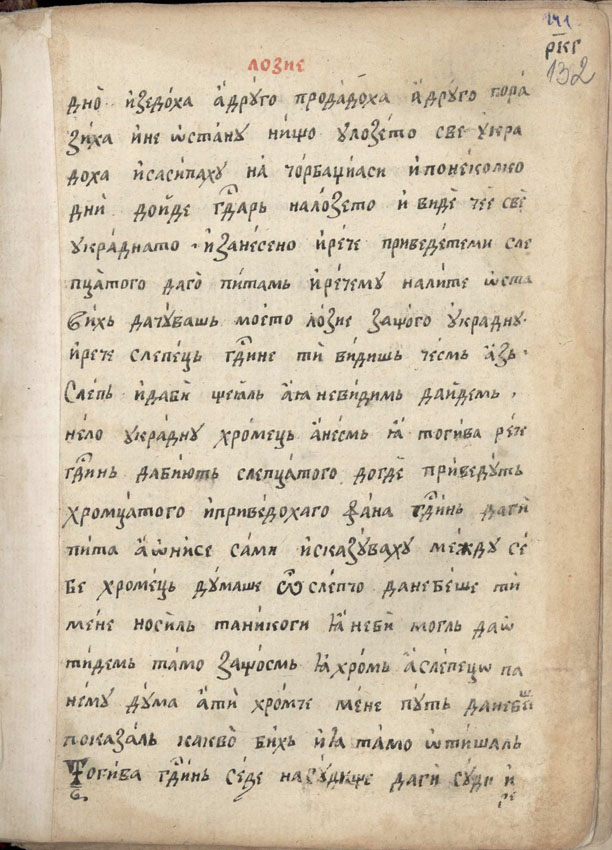 141
р҃кг
132
лозие
дно̀ ѝзедо́ха а҆дрꙋ́го прода́доха а҆дрꙋ́го пора́
зи́ха ѝне ѡста́нꙋ ни́що ꙋлозе́то све ꙋ҆кра
доха ѝсасипахꙋ на̀ чорбаџїаси ѝпонеколко
дни̇̀ до́йде гдⷭ҇арь нало́зето ѝ видѐ чее свѐ
ꙋкра́днато · ѝзане́сено ѝре́че приведе́теми сле
пца́того даго̀ пи́тамь ѝре́чемꙋ нали́те ѡста
вихь дачꙋ́вашь мое́то ло́зие защо́го ꙋ҆кра́днꙋ·
ѝрече слепе́ць гдⷭ҇ине ти̏ ви́дишь че́смь а҆́зь ·
Слепь ѝдаби̏ щеꙗль а҆ꙗ неви́димь дайдемь ,
не́ло ꙋкра́днꙋ хро́мець а҆не́смь ꙗ҆ тоги́ва ре́че
гдⷭ҇инь даби́ють слепца́того догдѐ приведꙋть
хромца́того ѝприведо́хаго фа́на гдⷭ҇инь даги̏
пита а҆ѡни́се са́мѝ ѝска́зꙋвахꙋ ме́ждꙋ се́
бе хро́мець дꙋ́маше ѿ сле́пчо данебе́ше ти̏
ме́не носи́ль тани́коги ꙗ҆неби̏ могль даѡ
ти́демь та́мо защо́смь ꙗ҆хро́мь а҆слепецѡ па
не́мꙋ дꙋ́ма а҆ти̏ хро́мче ме́не пꙋть данебеⷲ҇
показа́ль какво̀ би́хь ѝꙗ҆ та́мо ѡти́шаль
Тоги́ва гдⷭ҇инь се́де насꙋ́дище даги̏ сꙋ́ди ѝ
ре